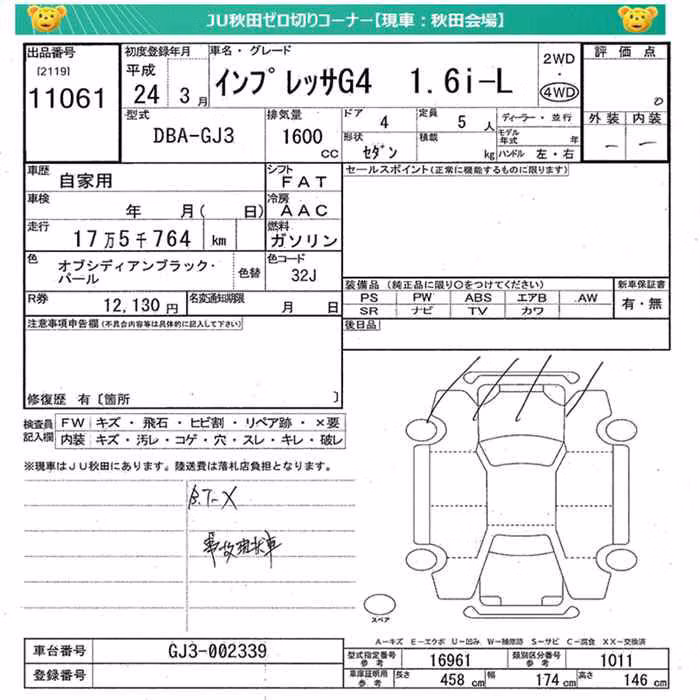 JU秋田ゼロ切りコーナー【現車：秋田会場】
出品番号
[2119]
11061
初度登録年月
平成
24 3月
車名・グレード
インプレッサG4 1.6i-L
2WD
4WD
評価点
0
外装 内装
－ －
型式
DBA-GJ3
排気量
1600 cc
ドア 4
定員 5 人
形状 セダン
積載 kg
ディーラー・並行
モデル年式 年
ハンドル 左・右
車歴
自家用
シフト
FAT
車検
年 月( 日)
冷房
AAC
走行
17万5千764 km
燃料
ガソリン
色
オブシディアンブラック・パール
色替
色コード
32J
R券
12,130円
名変通知期限
月 日
セールスポイント(正常に機能するものに限ります)
装備品 (純正品に限り○をつけてください)
PS PW ABS エアB .AW
SR ナビ TV カワ
新車保証書
有・無
後日品
注意事項申告欄(不具合内容等は具体的に記入して下さい)
修復歴 有〔箇所 〕
検査員記入欄
FW キズ・飛石・ヒビ割・リペア跡・×要
内装 キズ・汚レ・コゲ・穴・スレ・キレ・破レ
※現車はJU秋田にあります。陸送費は落札店負担となります。
事故現状車
スペア
A-キズ E-エクボ U-凹み W-補修跡 S-サビ C-腐食 XX-交換済
車台番号 GJ3-002339
登録番号
型式指定番号参考 16961
類別区分番号参考 1011
車庫証明用参考 長さ 458 cm 幅 174 cm 高さ 146 cm